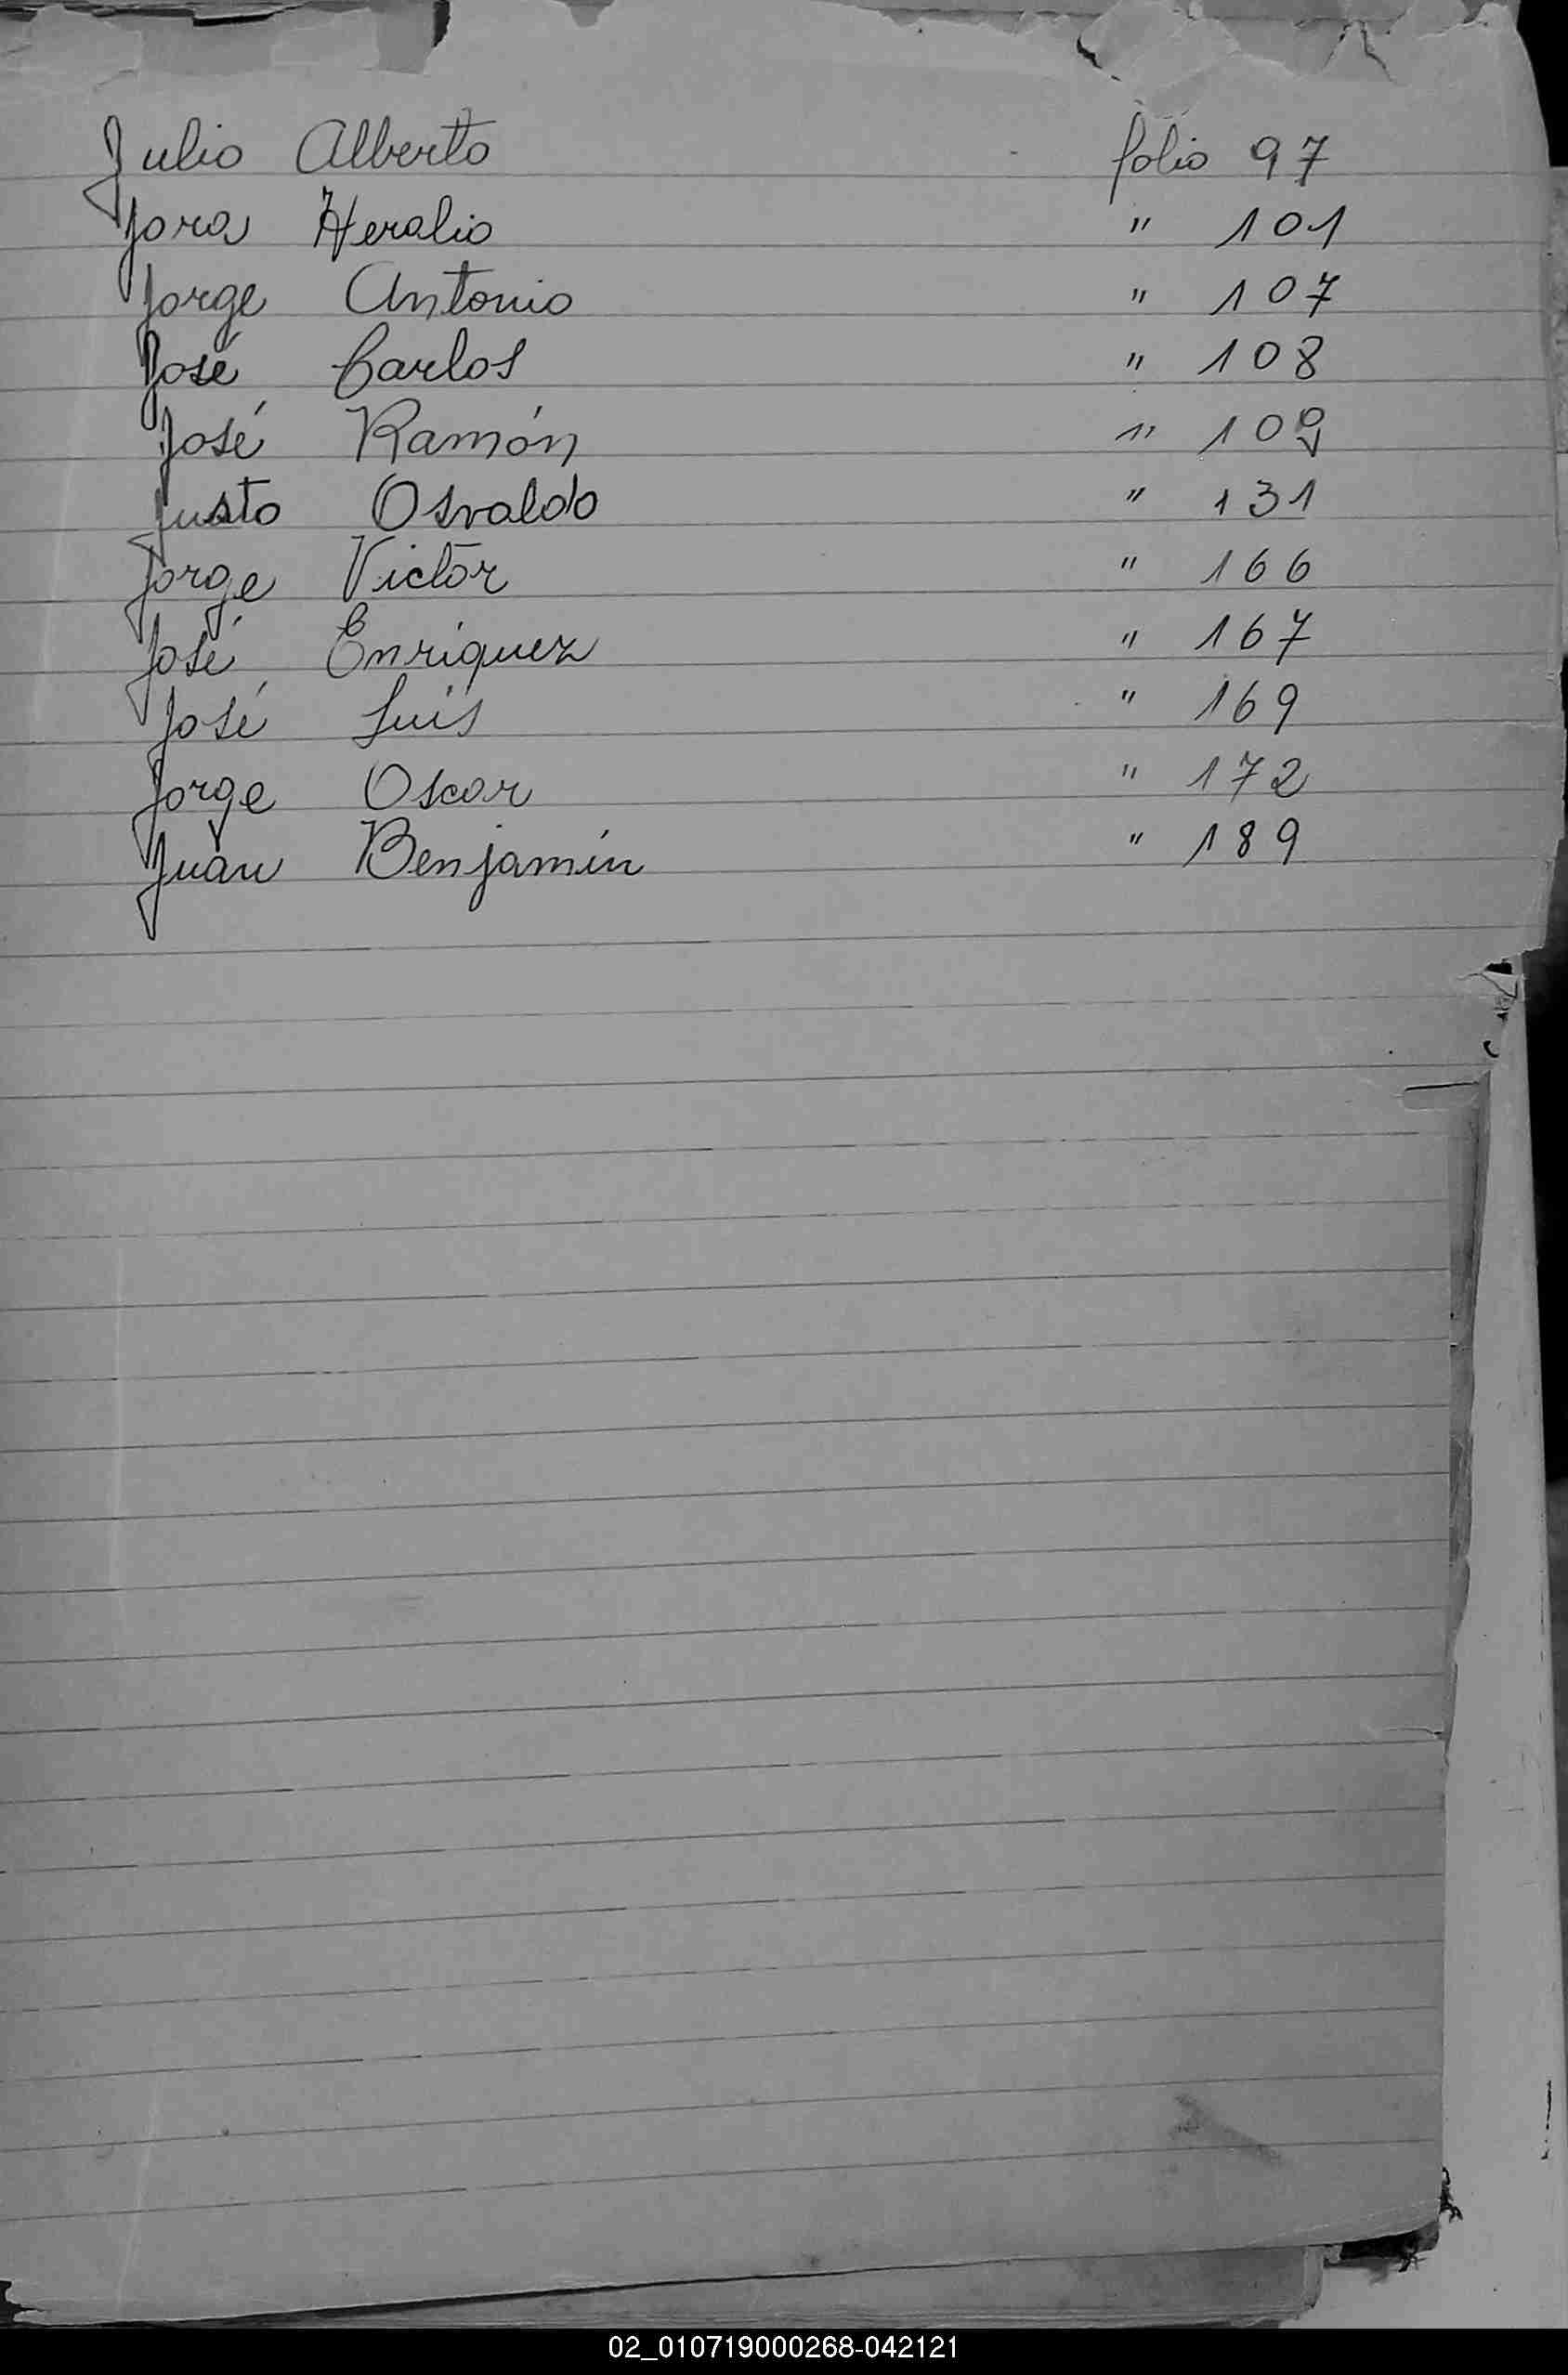 Julio Alberto folio 97
Jora Heralio " 101
Jorge Antonio " 107
José Carlos " 108
José Ramón " 109
Justo Osvaldo " 131
Jorge Victor " 166
José Enriquez " 167
José Luis " 169
Jorge Oscar " 172
Juan Benjamín " 189
02_010719000268-042121